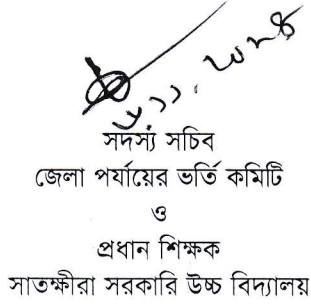 সদস্য সচিব
জেলা পর্যায়ের ভর্তি কমিটি
ও
প্রধান শিক্ষক
সাতক্ষীরা সরকারি উচ্চ বিদ্যালয়